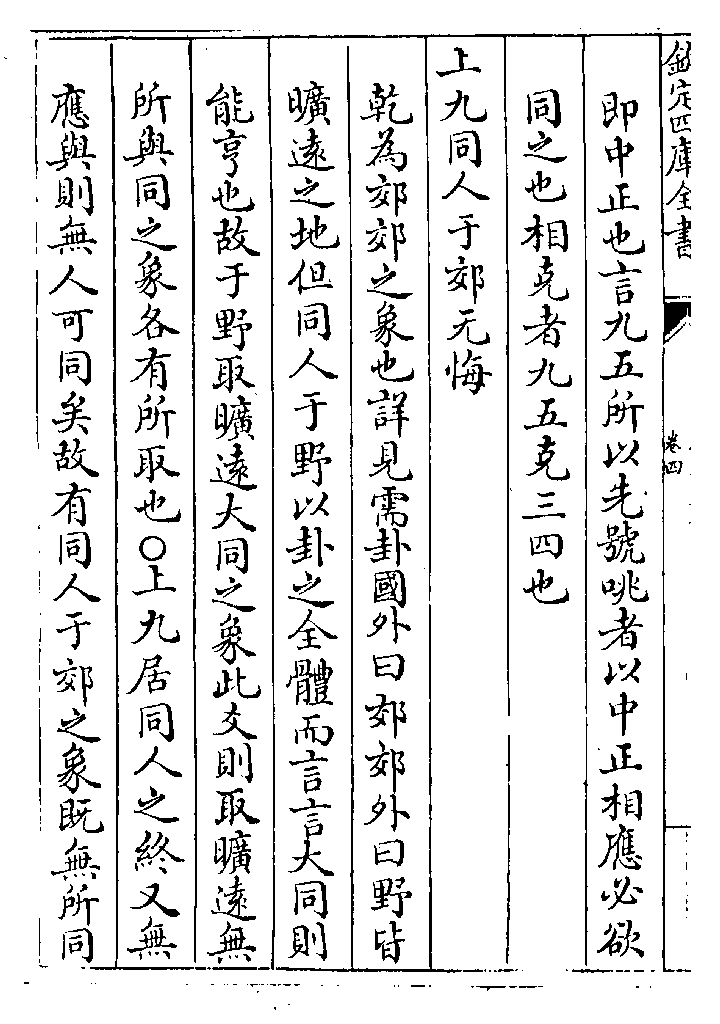 欽定四庫全書
卷四
即中正也言九五所以先號咷者以中正相應必欲
同之也相克者九五克三四也
上九同人于郊无悔
乾為郊郊之象也詳見需卦國外曰郊郊外曰野皆
曠遠之地但同人于野以卦之全體而言言大同則
能亨也故于野取曠遠大同之象此爻則取曠遠無
所與同之象各有所取也○上九居同人之終又無
應與則無人可同矣故有同人于郊之象既無所同